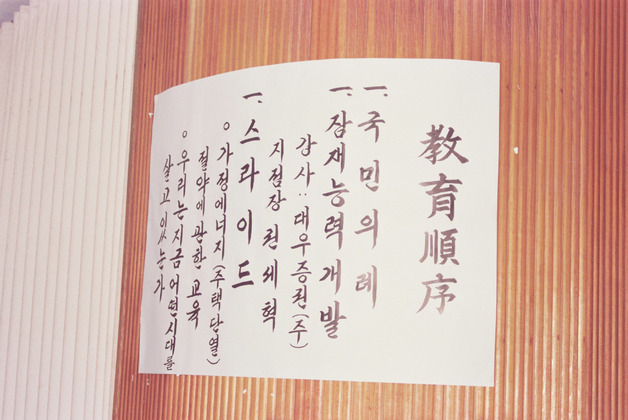 敎育順序
一. 국민의례
一. 잠재능력개발
강사: 대우증권(주)
지점장 권세혁
一. 스라이드
○ 가정에너지(주택단열)
절약에 관한 교육
○ 우리는 지금 어떤 시대를
살고 있는가